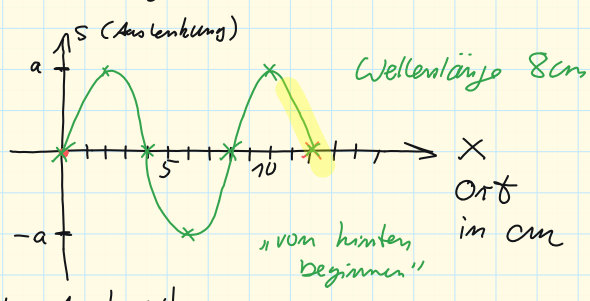 s (Auslenkung)
a
Wellenlänge 8cm
5
10
x
Ort
in cm
-a
„von hinten
beginnen"